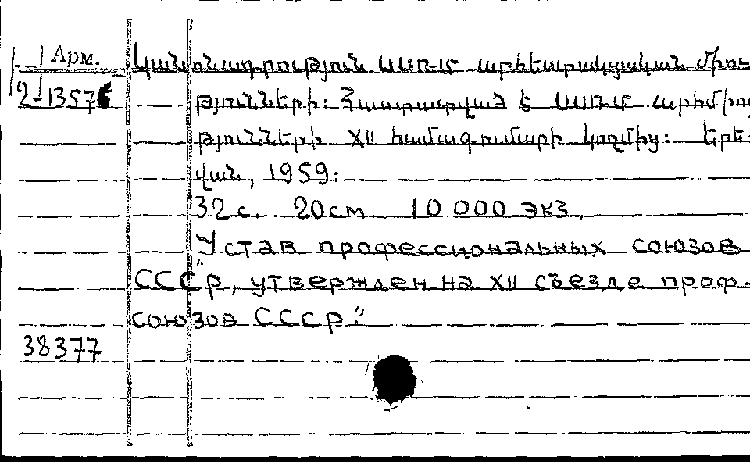 Арм.
Կանոնադրություն ՍՍՌՄ արհեստակցական միու-
2-1357
թյունների: Հաստատված է ՍՍՌՄ արհմիու
թյունների XII համագումարի կողմից: Երե-
վան, 1959:
32 с. 20см 10 000 экз.
"Устав профессиональных союзов
СССР, утвержден на XII съезде проф.
союзов СССР."
38377